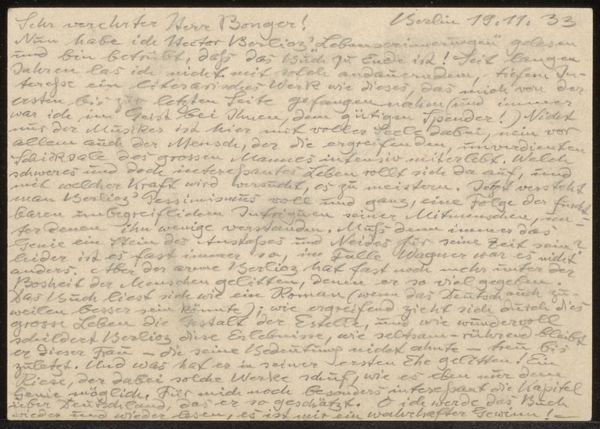 Sehr verehrter Herr Bonger! Berlin 19.11.33
Nun habe ich Hector Berlioz' "Lebenserinnerungen" gelesen
und bin betrübt, daß das Buch zu Ende ist! Seit langen
Jahren las ich nicht mit solch andauerndem, tiefem In-
teresse ein literarisches Werk wie dieses, das mich von der
ersten bis zur letzten Seite gefangen nahm (und immer
war ich im Geist bei Ihnen, dem gütigen Spender!) Nicht
nur der Musiker ist hier mit voller Seele dabei, nein vor
allem auch der Mensch, der die ergreifenden, unverdienten
Schicksale des grossen Mannes intensiv miterlebt. Welch
schweres und doch interessantes Leben rollt sich da auf, und
mit welcher Kraft wird versucht, es zu meistern. Jetzt versteht
man Berlioz' Pessimismus voll und ganz, eine Folge der furcht-
baren unbegreiflichen Intriguen seiner Mitmenschen, un-
ter denen ihn wenige verstanden. Muß denn immer das
Genie ein Stein des Anstoßes und Neides für seine Zeit sein?
leider ist es fast immer so, im Falle Wagner war es nicht
anders. Aber der arme Berlioz hat fast noch mehr unter der
Bosheit der Menschen gelitten, denen er so viel gegeben.
Das Buch liest sich wie ein Roman (wenn das Deutsch auch zu-
weilen besser sein könnte), wie ergreifend zieht sich durch dies
grosse Leben die Gestalt der Estelle, und wie wundervoll
schildert Berlioz diese Erlebnisse, wie seltsam rührend bleibt
er dieser Frau – die seine Bedeutung nicht ahnte – treu bis
zuletzt. Und was hat er in seiner ersten Ehe gelitten! Ein
Riese, der dabei solche Werke schuf, wie es eben nur dem
Genie möglich. Für mich noch besonders interessant die Kapitel
über Deutschland, das er so geschätzt. O ich werde das Buch
wieder und wieder lesen, es ist mir ein wahrhafter Gewinn! –